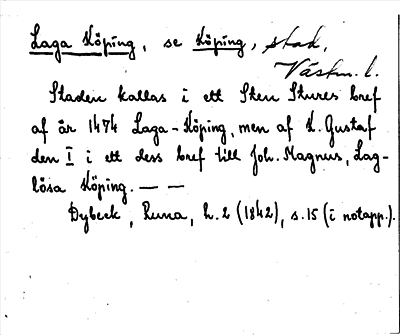 Laga Köping, se Köping, stad,
Västm. l.
Staden kallas i ett Sten Stures bref
af år 1474 Laga-Köping, men af K. Gustaf
den I i ett dess bref till Joh. Magnus, Lag-
lösa Köping. — —
Dybeck, Runa, h. 2 (1842), s. 15 (i notapp.).